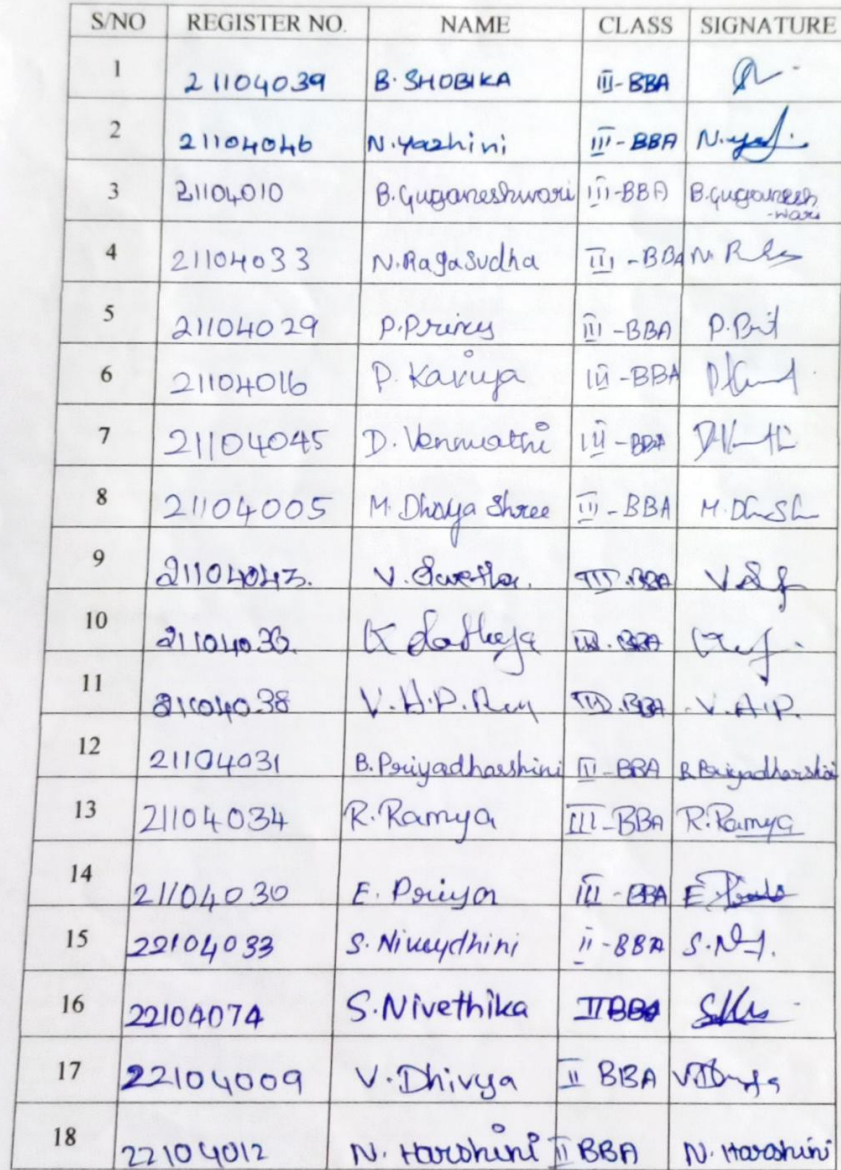 S/NO REGISTER NO. NAME CLASS SIGNATURE
1 21104039 B. SHOBIKA III-BBA
2 21104046 N. Yazhini III-BBA
3 21104010 B. Guganeshwari III-BBA B. Guganesh
-wari
4 21104033 N. Ragasudha III-BBA N.
5 21104029 P. Princy III-BBA P.
6 21104016 P. Kaviya III-BBA
7 21104045 D. Vennmathi III-BBA
8 21104005 M. Dhivya Shree III-BBA M.
9 21104043. V. Swetha. III.BBA V.
10 K III.BBA
11 21104038 V.A.P. III.BBA V.A.P.
12 21104031 B. Priyadharshini III-BBA B. Priyadharshini
13 21104034 R. Ramya III-BBA R. Ramya
14 21104030 E. Priya III-BBA E
15 22104033 S. II-BBA S.
16 22104074 S. Nivethika II BBA
17 22104009 V. Dhivya II BBA
18 22104012 N. Harshini II BBA N. Harshini